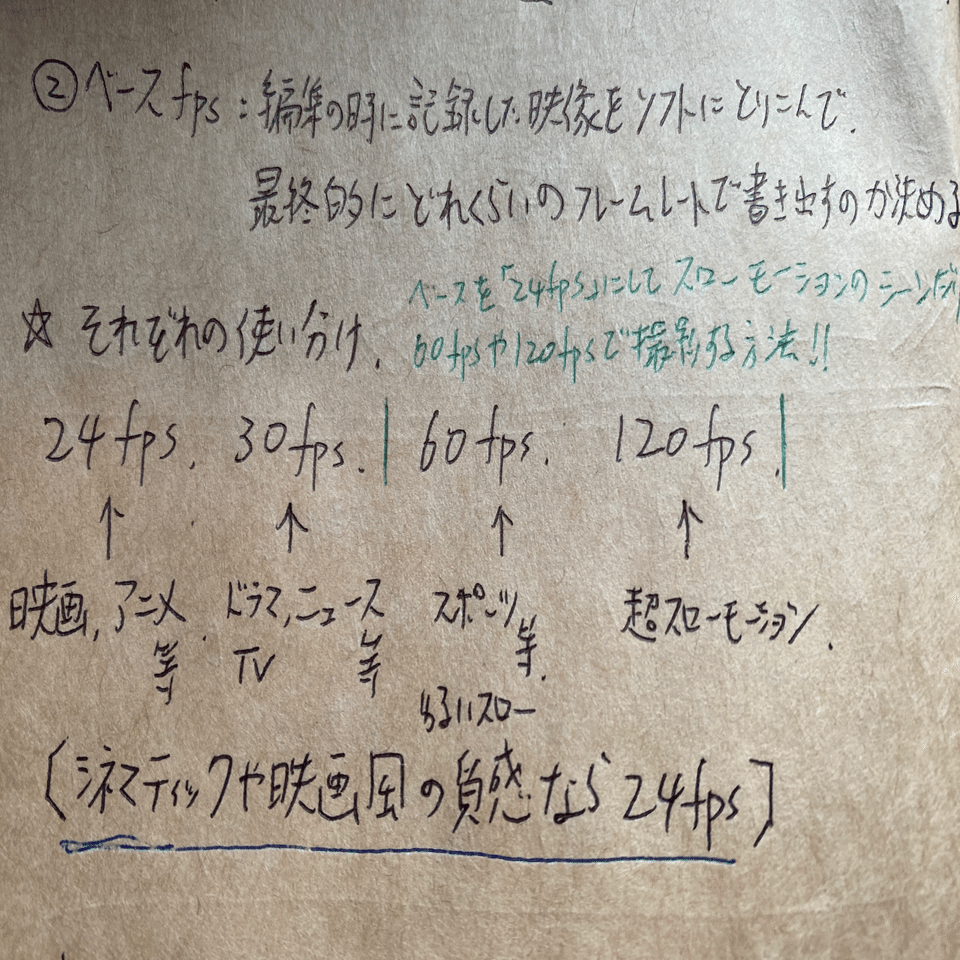 ②ベースfps:編集の時に記録した映像をソフトにとりこんで、
最終的にどれくらいのフレームレートで書き出すのか決める
ベースを「24fps」にしてスローモーションのシーンだけ
☆それぞれの使い分け、
60fpsや120fpsで撮影する方法!!
24fps、30fps、| 60fps、 120fps、|
↑ ↑ ↑ ↑
映画、アニメ等、 ドラマ、ニュース等 スポーツ等、 超スローモーション、
TV
ゆるいスロー
〔シネマティックや映画風の質感なら24fps〕